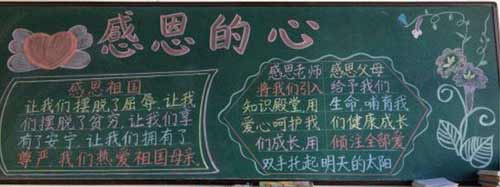 感恩的心
感恩祖国
让我们摆脱了屈辱,让我
们摆脱了贫穷,让我们享
有了安宁,让我们拥有了
尊严,我们热爱祖国母亲。
感恩老师
将我们引入
知识殿堂,用
爱心呵护我
们成长,用
感恩父母
给予我们
生命,哺育我
们健康成长
倾注全部爱
双手托起明天的太阳